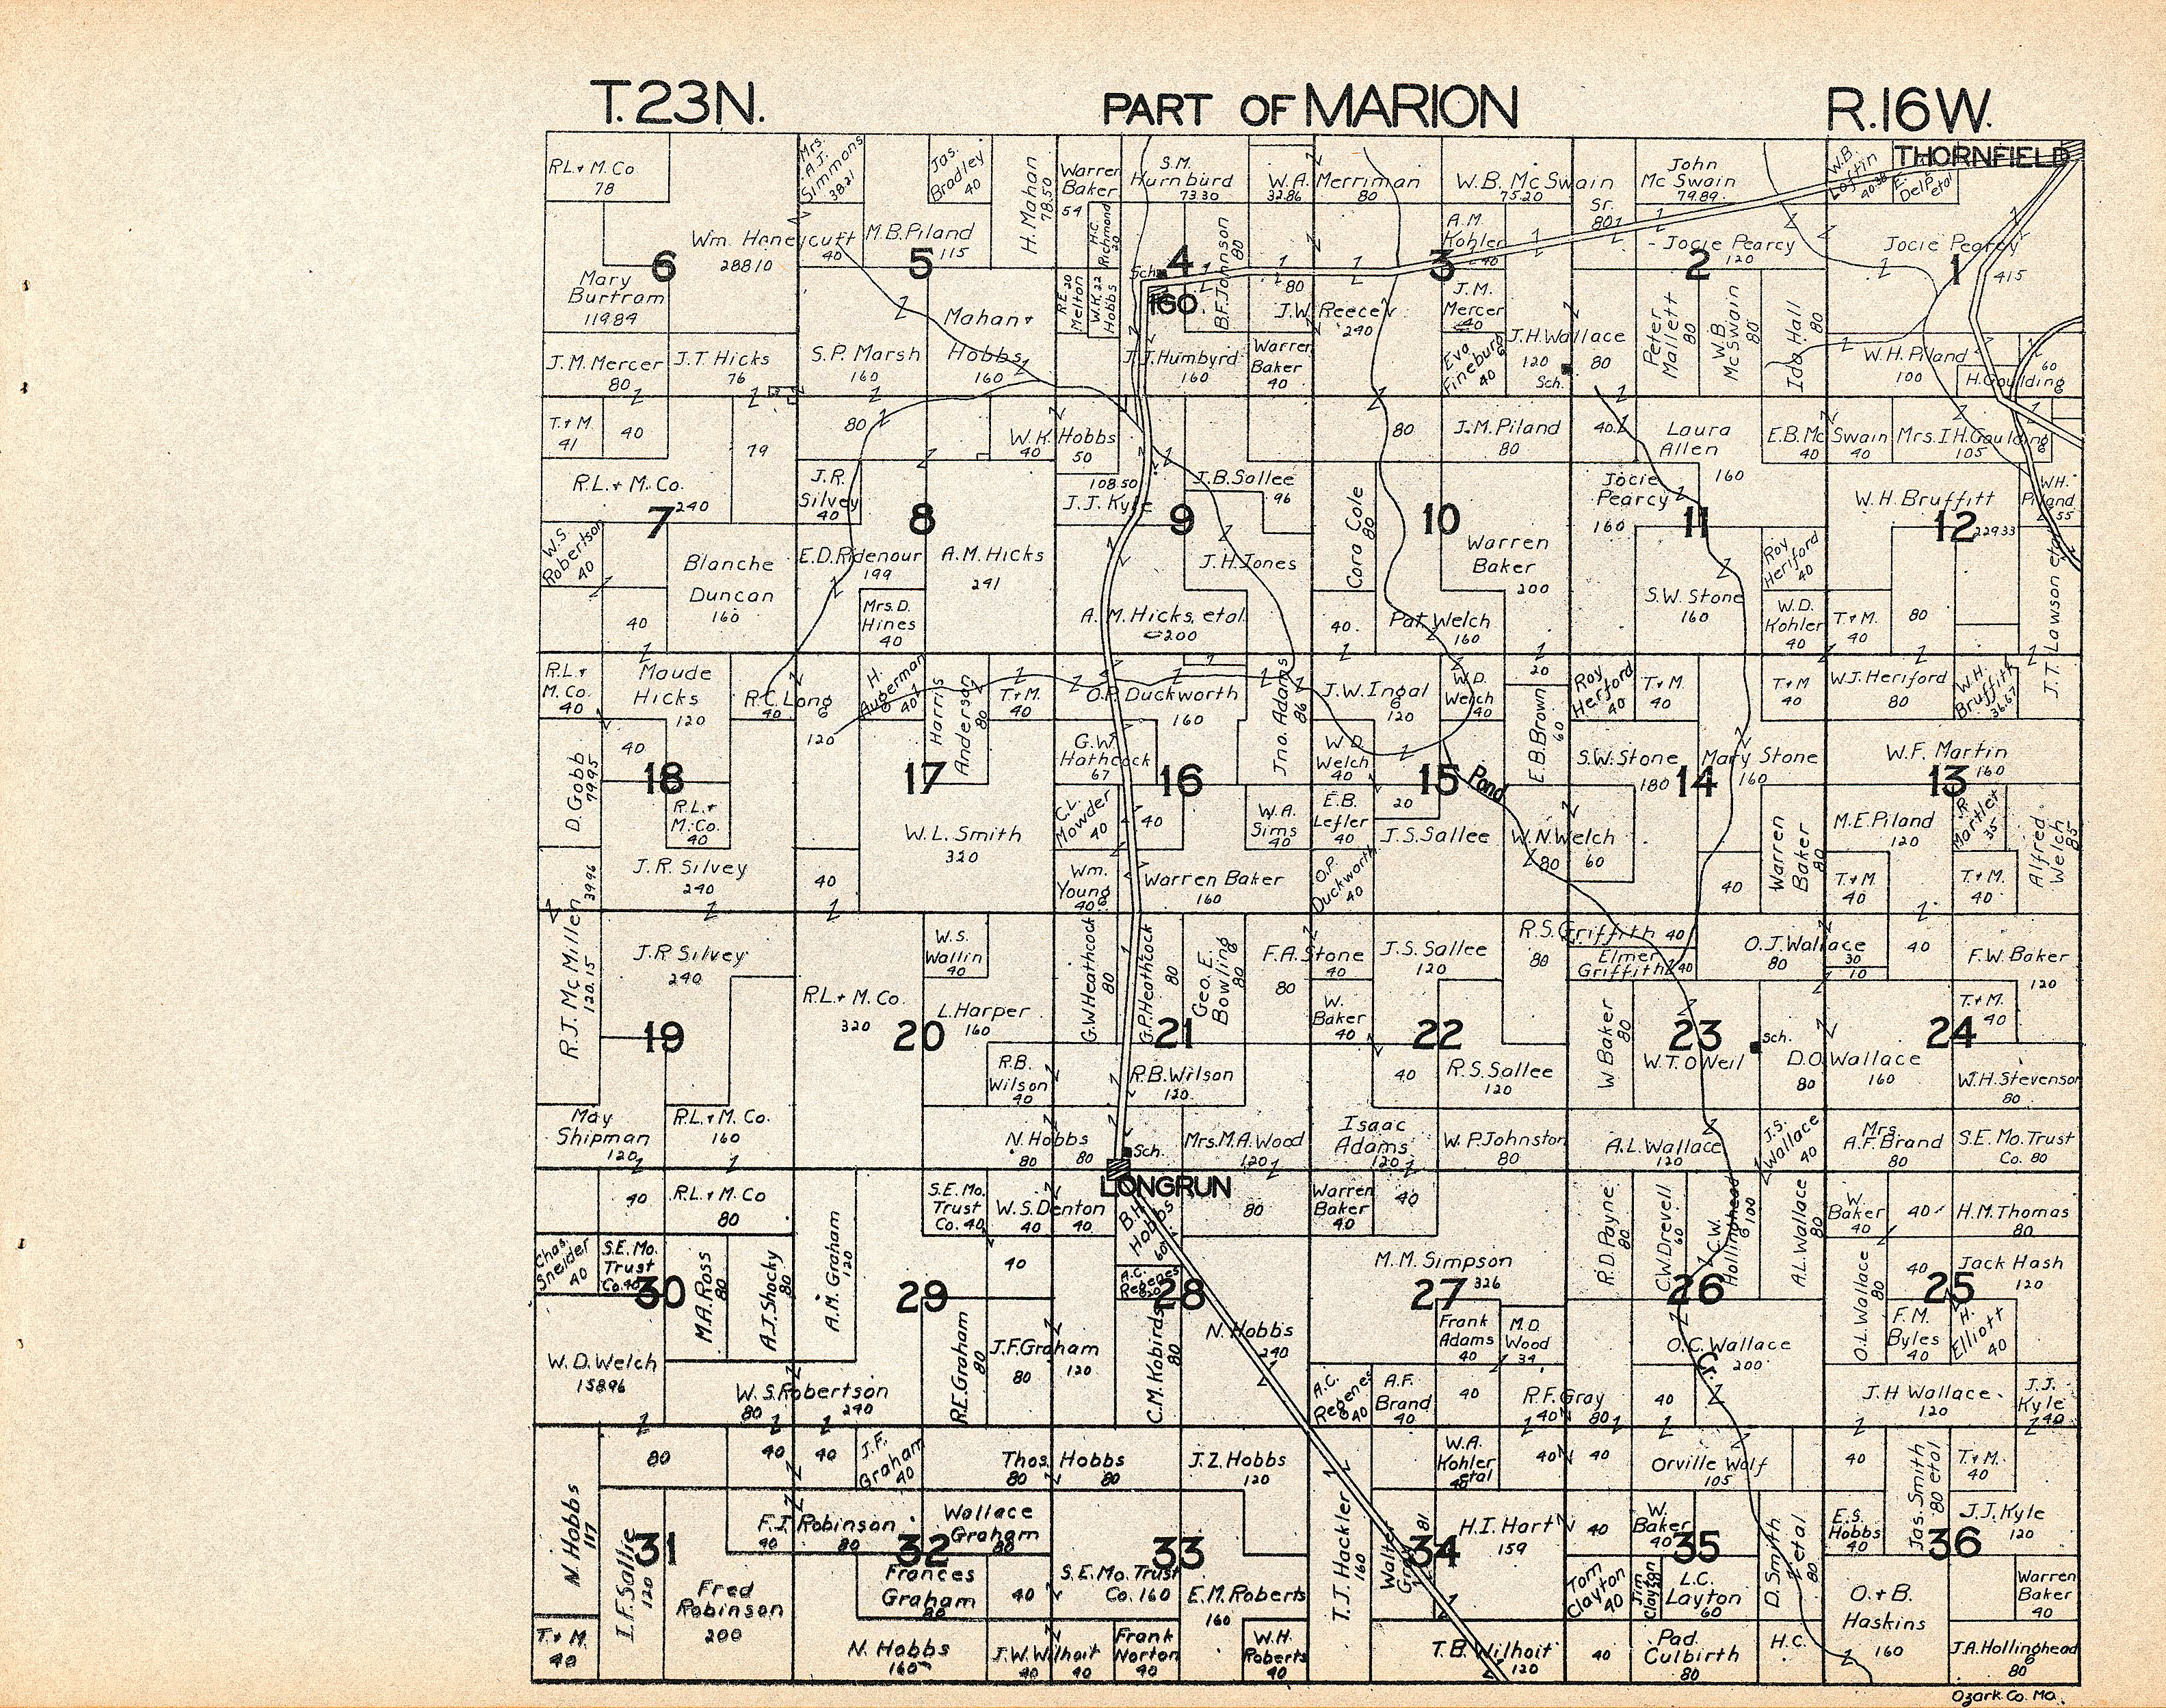 T.23N.
PART OF MARION
R.16W.
THORNFIELD
R.L.+M.Co
78
Mrs.
A.J.
Simmons
38.21
Jas.
Bradley
40
H. Mahan
78.50
Warren
Baker
54
S.M.
Hurnburd
73.30
W.A. Merriman
32.86
80
W.B. McSwain
75.20
Sr.
80
John
McSwain
79.89
W.B.
Loftin
40.38
E.
DelPetal
Wm. Honeycutt
288.10
40
M.B. Piland
115
H.C.
Richmond
20
B.F. Johnson
80
A.M.
Kohler
40
Jocie Pearcy
120
Jocie Pearcy
415
6
5
4
3
2
1
Mary
Burtram
119.84
Mahan+
Hobbs
160
R.E. 20
Melton
W.K. 22
Hobbs
Sch.
IGO
80
J.W. Reece
240
J.M.
Mercer
40
Peter
Mallett
80
W.B.
McSwain
80
Ida Hall
80
J.M. Mercer
80
J.T. Hicks
76
S.P. Marsh
160
J.J. Humbyrd
160
Warren
Baker
40
Eva
Fineburg
40
J.H. Wallace
120
80
Sch.
W.H. Piland
100
H. Goulding
60
T.+M.
41
40
79
80
W.K. Hobbs
40
50
80
J.M. Piland
80
40
Laura
Allen
160
E.B. McSwain
40
40
Mrs. I.H. Goulding
105
R.L.+M.Co.
240
J.R.
Silvey
40
108.50
J.J. Kyle
J.B. Sallee
96
Cora Cole
80
Jocie
Pearcy
160
W.H. Bruffitt
229.33
W.H.
Piland
55
7
8
9
10
11
12
W.S.
Robertson
40
Blanche
Duncan
160
E.D. Ridenour
199
A.M. Hicks
241
J.H. Jones
Warren
Baker
200
Roy
Heriford
40
J.T. Lawson etal
40
Mrs. D.
Hines
40
A.M. Hicks, etal
200
40
Pat Welch
160
S.W. Stone
160
W.D.
Kohler
40
T+M.
40
80
R.L.+
M.Co.
40
Maude
Hicks
120
R.C. Long
40
120
H.
Augerman
40
Harris
Anderson
80
T+M.
40
O.P. Duckworth
160
Jno. Adams
86
J.W. Ingal
120
W.D.
Welch
40
20
E.B. Brown
60
Roy
Herford
40
T+M.
40
T+M
40
W.J. Heriford
80
W.H.
Bruffitt
36.67
D. Gobb
79.95
40
G.W.
Hathcock
67
W.D.
Welch
40
Pond
S.W. Stone
180
Mary Stone
160
W.F. Martin
160
18
17
16
15
14
13
R.L.+
M.Co.
40
W.L. Smith
320
C.L.
Mowder
40
40
W.A.
Sims
40
E.B.
Lefler
40
20
J.S. Sallee
W.N. Welch
80
60
Warren
Baker
80
M.E. Piland
120
J.R.
Martler
35
Alfred
Welch
85
J.R. Silvey
240
40
Wm.
Young
40
Warren Baker
160
O.P.
Duckworth
40
40
T.+M.
40
T.+M.
40
R.J. McMillen
39.96
120.15
J.R. Silvey
240
W.S.
Wallin
40
G.W. Heathcock
80
G.P. Heathcock
80
Geo. E.
Bowling
80
F.A. Stone
40
80
J.S. Sallee
120
R.S. Griffith 40
80
Elmer
Griffith 40
O.J. Wallace
80
30
10
40
F.W. Baker
120
R.L.+M.Co.
320
L. Harper
160
W.
Baker
40
W Baker
80
T.+M.
40
19
20
21
22
23
24
Sch.
W.T. O'Neil
R.B.
Wilson
40
R.B. Wilson
120
40
R.S. Sallee
120
D.O. Wallace
80
160
W.H. Stevenson
80
May
Shipman
120
R.L.+M.Co.
160
N. Hobbs
80
80
Sch.
Mrs. M.A. Wood
120
Isaac
Adams
120
W.P. Johnston
80
A.L. Wallace
120
J.S.
Wallace
40
Mrs.
A.F. Brand
80
S.E. Mo. Trust
Co. 80
LONGRUN
40
R.L.+M.Co
80
S.E. Mo.
Trust
Co. 40
W.S. Denton
40
40
B.H.
Hobbs
60
80
Warren
Baker
40
40
R.D. Payne
80
C.W. Drevell
60
C.W.
Hollinghead
100
A.L. Wallace
80
W
Baker
40
40
H.M. Thomas
80
Chas.
Sneider
40
S.E. Mo.
Trust
Co. 40
M.A. Ross
80
A.J. Shocky
80
A.M. Graham
120
40
A.C.
Regenes
20
M.M. Simpson
326
O.L. Wallace
80
40
Jack Hash
120
30
29
28
27
26
25
W.D. Welch
158.96
R.E. Graham
80
J.F. Graham
80
120
C.M. Kobirds
80
N. Hobbs
240
Frank
Adams
40
M.D.
Wood
34
O.C. Wallace
200
Cr.
F.M.
Byles
40
H.
Elliott
40
W.S. Robertson
80
240
A.C.
Regenes
40
A.F.
Brand
40
40
R.F. Gray
40
80
40
J.H Wallace
120
J.J.
Kyle
40
N. Hobbs
117
80
40
40
J.F.
Graham
40
Thos. Hobbs
80
80
J.Z. Hobbs
120
T.J. Hackler
160
W.A.
Kohler
etal
40
40
40
Orville Wolf
105
40
Jas. Smith
80 etal
T+M.
40
I.F. Sallie
120
F.I. Robinson
40
80
Wallace
Graham
80
Walter
Gray
81
H.I. Hart
159
40
W.
Baker
40
D. Smith
etal
80
E.S.
Hobbs
40
J.J. Kyle
120
31
32
33
34
35
36
Fred
Robinson
200
Frances
Graham
80
40
S.E. Mo. Trust
Co. 160
E.M. Roberts
160
Tom
Clayton
40
Jim
Clayton
L.C.
Layton
60
O.+B.
Haskins
160
Warren
Baker
40
T.+M.
40
N. Hobbs
160
J.W. Wilhoit
40
40
Frank
Norton
40
W.H.
Roberts
40
T.B. Wilhoit
120
40
Pad
Culbirth
80
H.C.
J.A. Hollinghead
80
Ozark Co. Mo.